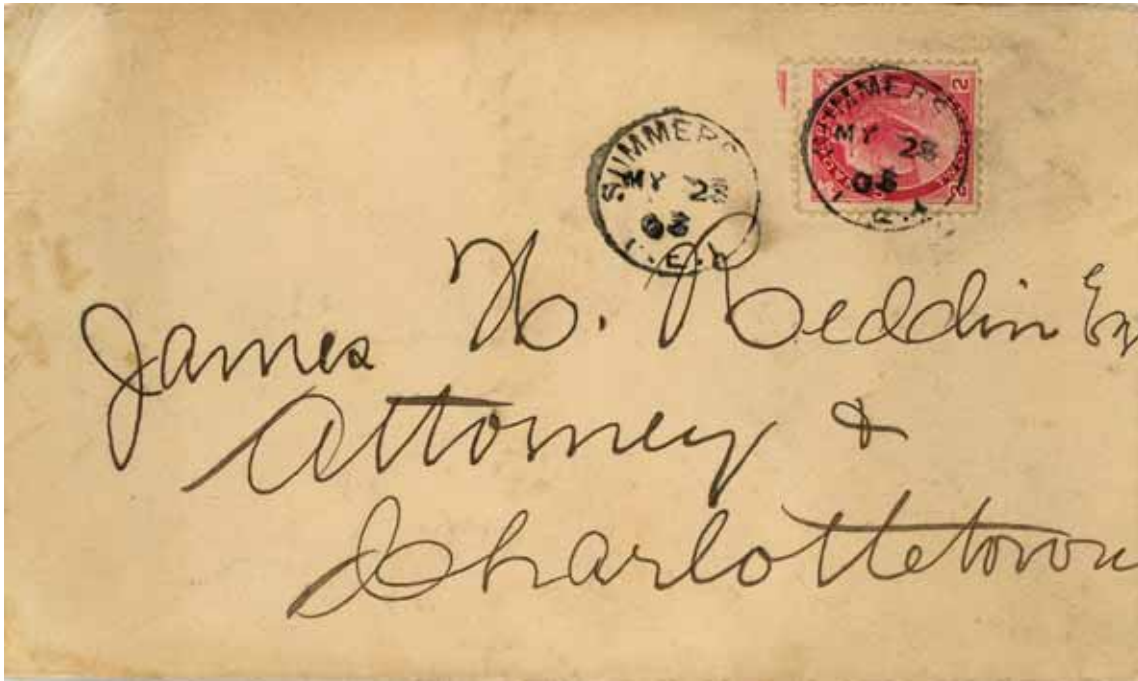 SUMMERS
MY 28
2 2
SUMMERS
MY 28
James H. Reddin Esq
Attorney &
Charlottetown